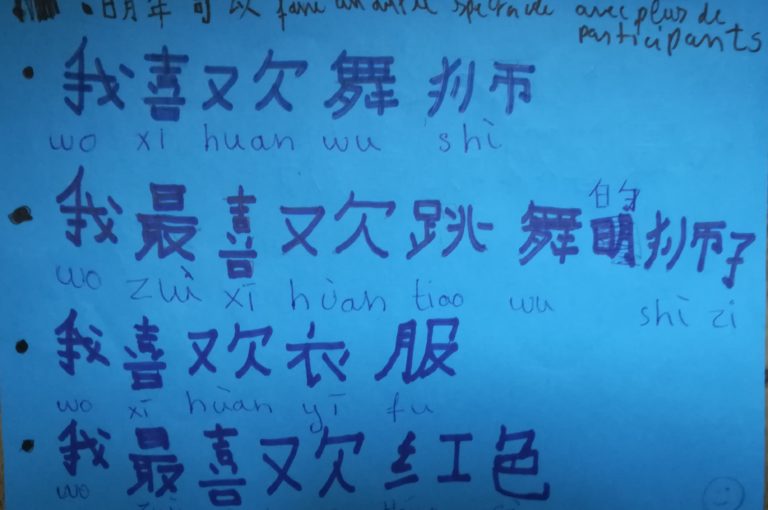 明年 可以 faire un autre spectacle avec plus de
participants
我喜欢舞狮
wo xi huan wu shì
的
我最喜欢跳舞 狮子
wo zuì xī hùan tiao wu shì zi
我喜欢衣服
wo xī hùan yī fu
我最喜欢红色
wo